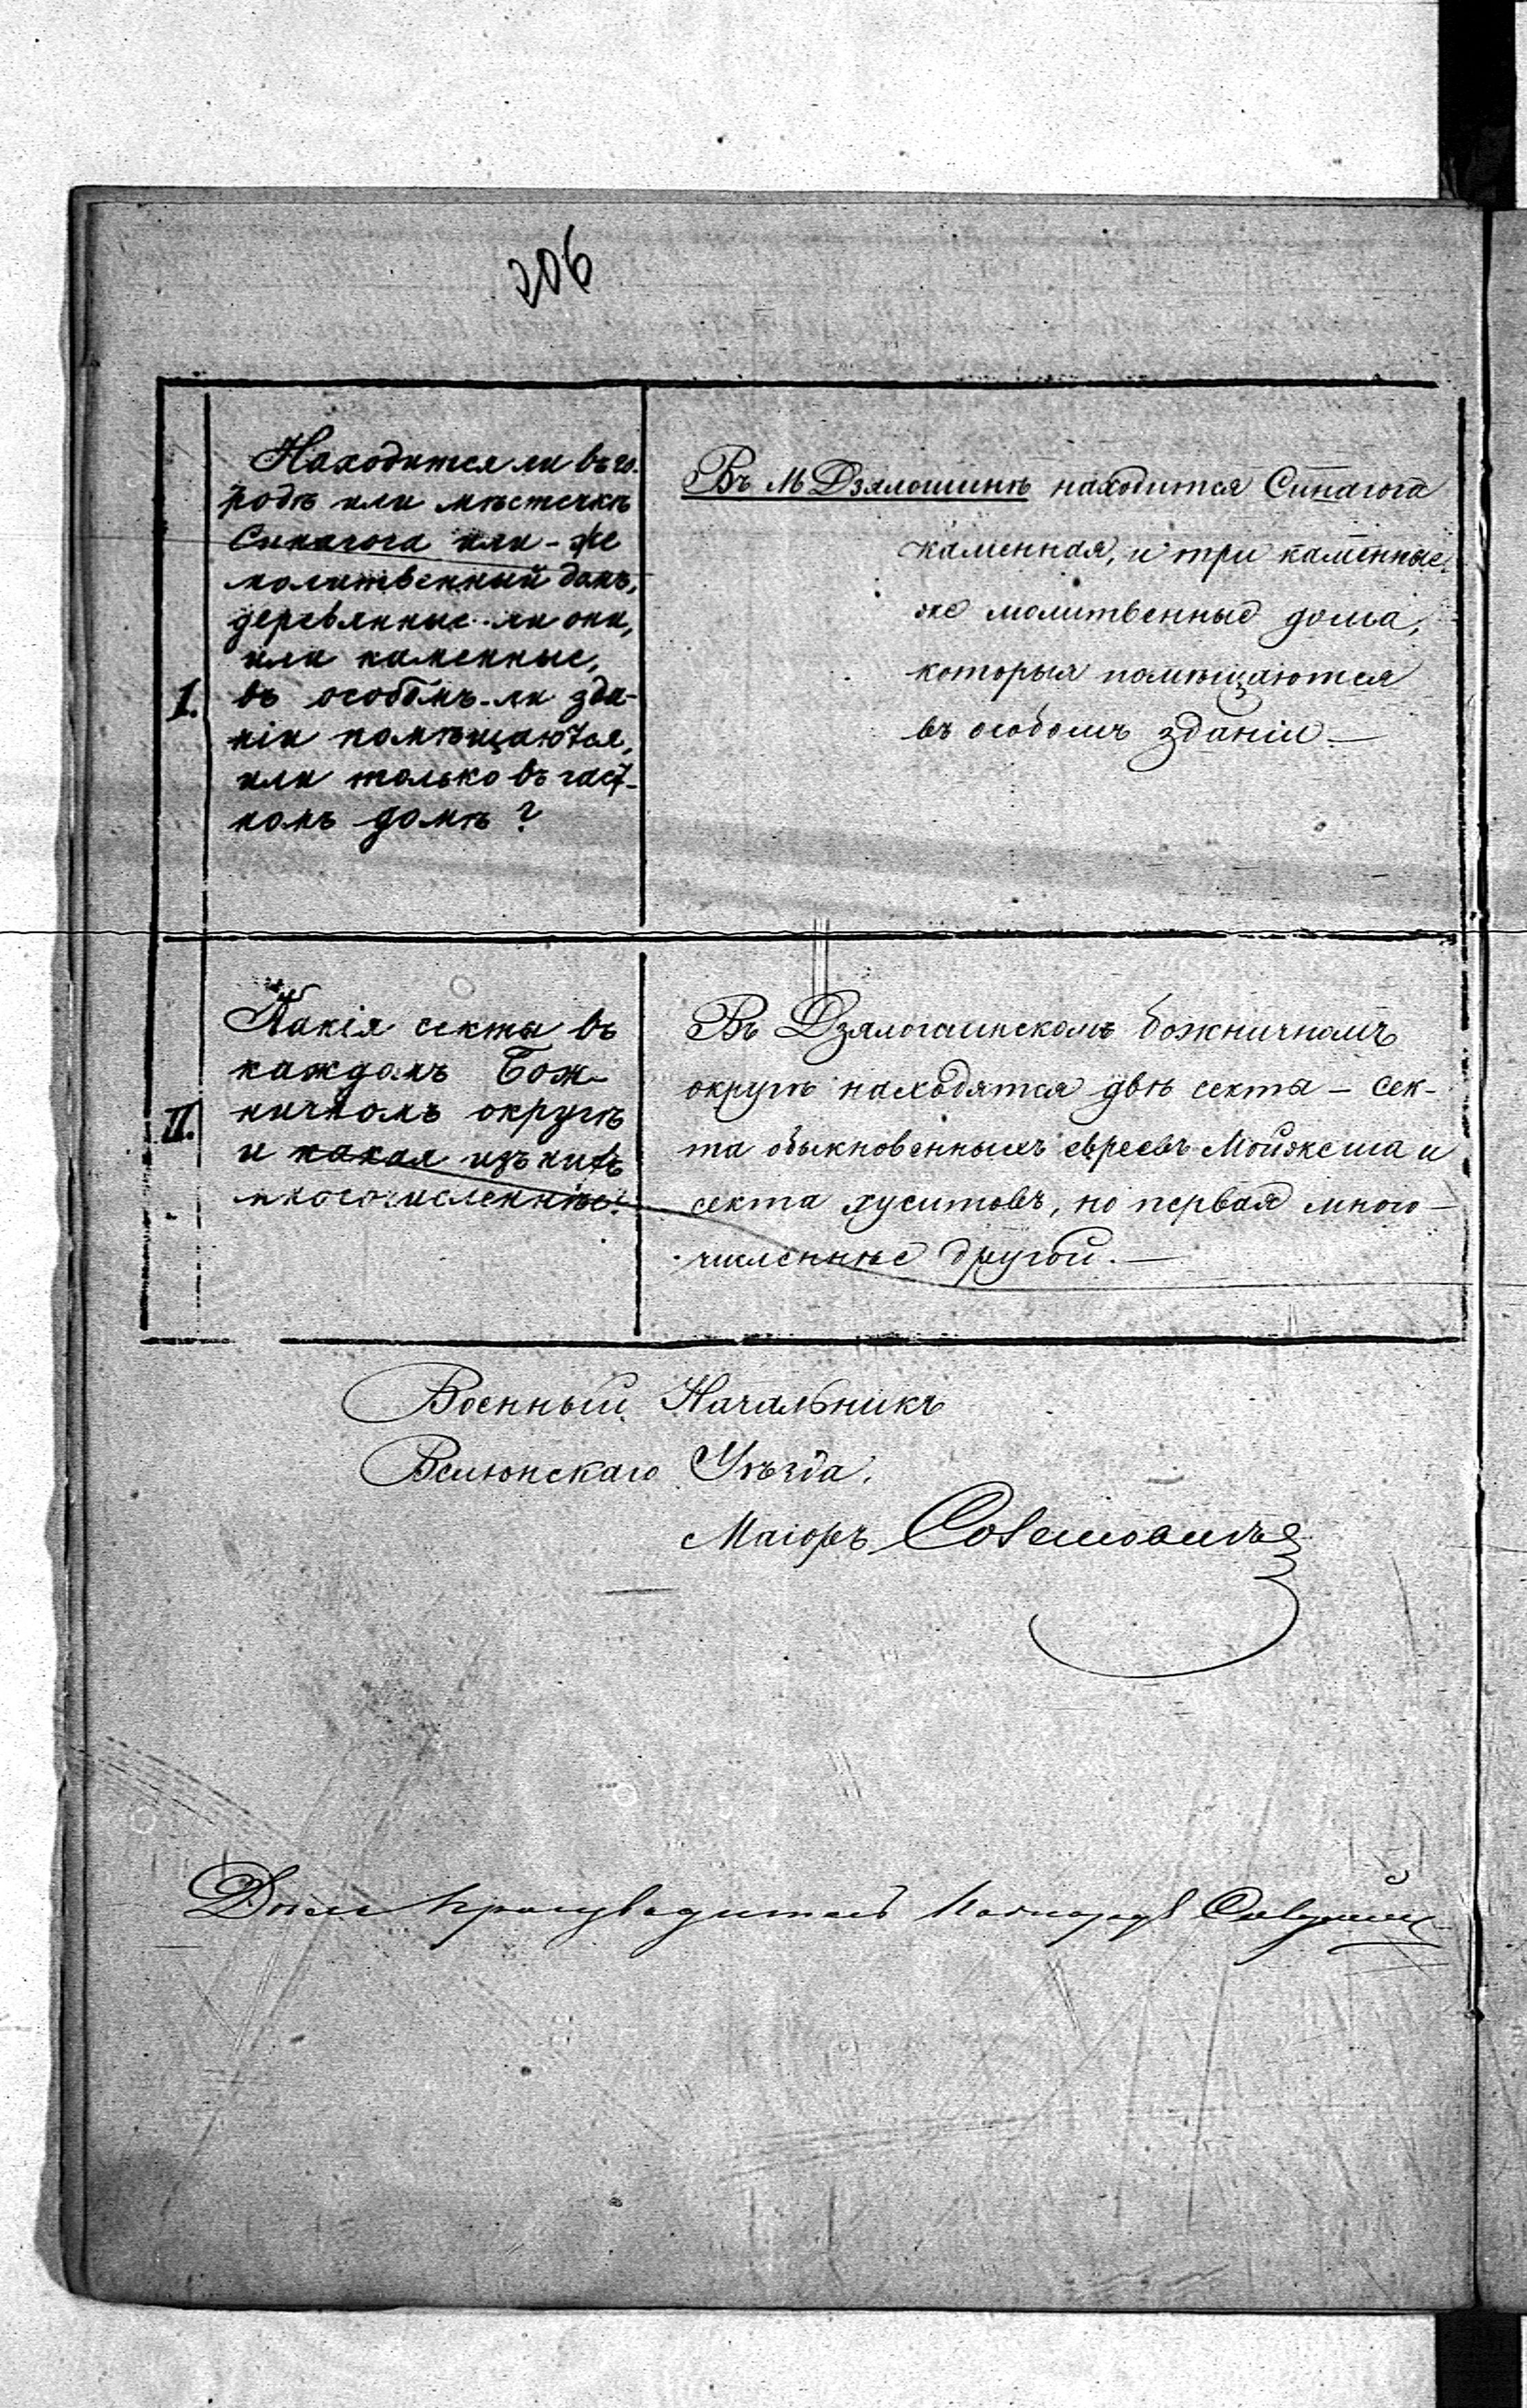 206
I.
Находится ли въ го-
родѣ или мѣстечкѣ
Синагога или-же
молитвенный домъ,
деревянные-ли они,
или каменные,
въ особомъ-ли зда-
ніи помѣщаются,
или только въ част-
номъ домѣ?
Въ М Дзялошинѣ находится Синагога
каменная, и три каменные
же молитвенные дома,
которыя помѣщаются
въ особомъ зданіи —
II.
Какія секты въ
каждомъ Бож-
ничномъ округѣ
и какая изъ нихъ
многочисленнѣе?
Въ Дзялошинскомъ божничномъ
округѣ находятся двѣ секты — сек-
та обыкновенныхъ евреевъ Мойжеша и
секта хуситовъ, но первая много-
численнѣе другой. —
Военный Начальникъ
Велюнскаго Уѣзда,
Маіоръ
Дѣлопроизводитель